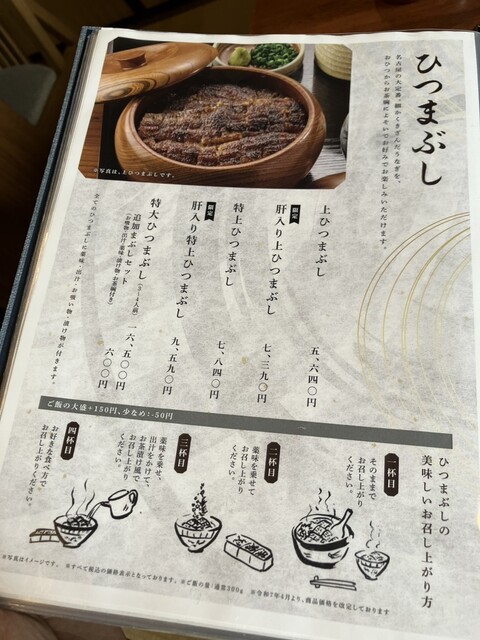 ひつまぶし
名古屋の大定番、細かくきざんだうなぎを、
おひつからお茶碗によそいでお好みでお楽しみいただけます。
※写真は、上ひつまぶしです。
上ひつまぶし 五、六四〇円
限定 肝入り上ひつまぶし 七、三九〇円
特上ひつまぶし 七、八四〇円
限定 肝入り特上ひつまぶし 九、五九〇円
特大ひつまぶし(3〜4人前) 一六、五〇〇円
追加まぶしセット 六〇〇円
(お吸物・出汁・薬味・漬け物・お茶碗付き)
全てのひつまぶしに薬味・出汁・お吸い物・漬け物が付きます。
ご飯の大盛+150円、少なめ:-50円
ひつまぶしの
美味しいお召し上がり方
一杯目
そのままで
お召し上がり
ください。
二杯目
薬味を乗せて
お召し上がり
ください。
三杯目
薬味を乗せ、
出汁をかけて、
お茶漬け風で
お召し上がり
ください。
四杯目
お好きな食べ方で
お召し上がりください。
※写真はイメージです。 ※すべて税込の価格表示となっております。 ※ご飯の量:通常300g ※令和7年4月より、商品価格を改定しております